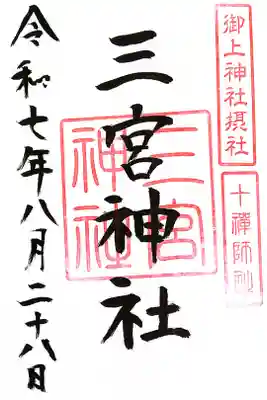 御上神社摂社
十禅師社
三宮神社
三宮神社
令和七年八月二十八日